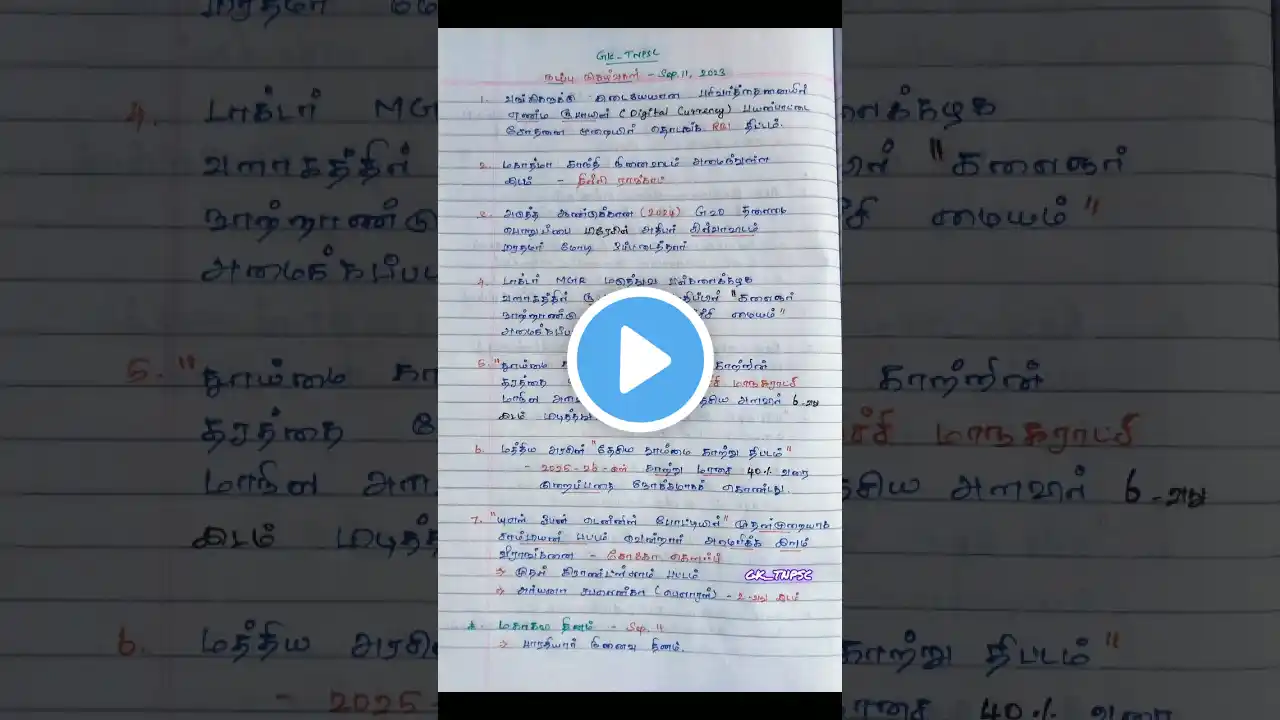 GK_TNPSC
நடப்பு நிகழ்வுகள் - Sep.11, 2023
1. வங்கிகளுக்கு இடையேயான பரிவர்த்தனையில்
எண்ம ரூபாயின் (Digital Currency) பயன்பாட்டை
சோதனை முறையில் தொடங்க RBI திட்டம்.
2. மகாத்மா காந்தி நினைவிடம் அமைந்துள்ள
இடம் - தில்லி ராஜ்காட்
3. அடுத்த ஆண்டுக்கான (2024) G20 தலைமை
பொறுப்பை பிரேசில் அதிபர் சில்வாவிடம்
பிரதமர் மோடி ஒப்படைத்தார்
4. டாக்டர் MGR மருத்துவ பல்கலைக்கழக
வளாகத்தில் "கலைஞர்
நூற்றாண்டு மையம்"
அமைக்கப்
5. "தூய்மை கா காற்றின்
தரத்தை மாநகராட்சி
அள தேசிய அளவில் 6-வது
இடம் பிடித்து
6. மத்திய அரசின் "தேசிய தூய்மை காற்று திட்டம்"
- 2025-26-க்குள் காற்று மாசை 40% வரை
குறைப்பதை நோக்கமாகக் கொண்டது.
7. "யுஎஸ் ஓபன் டென்னிஸ் போட்டியில்" முதன்முறையாக
சாம்பியன் பட்டம் வென்றார் அமெரிக்க இளம்
வீராங்கனை - கோகோ கௌஃப்
→ முதல் கிராண்ட்ஸ்லாம் பட்டம்
GK_TNPSC
→ அரினா சபலென்கா (பெலாரஸ்) - 2-வது இடம்
* மகாகவி தினம் - Sep. 11
→ பாரதியார் நினைவு தினம்.